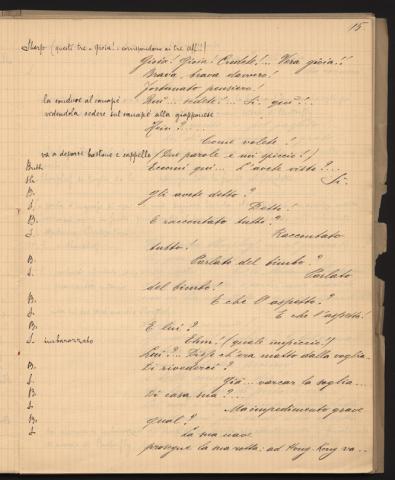 15
Sharp (questi tre "Gioia" corrispondono ai tre Ah!!!)
Gioia! Gioia. Credete!... Vera gioia!!
Brava, brava davvero!
Fortunato pensiero!
la conduce al canapé
Qui... sedete!... Sì qui!..
vedendola sedere sul canapé alla giapponese
Hein?....
Come volete!
va a deporre bastone e cappello (Due parole e mi spiccio!)
Butt. Eccomi qui... L'avete visto?....
Sh. Sì.
B. Gli avete detto?
S. Detto!
B. E raccontato tutto?
S. Raccontato
tutto!
B. Parlato del bimbo?
S. Parlato
del bimbo!
B. E che l'aspetto?
S. E che l'aspetti!
B. E lui?
S. imbarazzato Ehm! (quale impiccio!)
Lui?... Disse ch'era matto dalla voglia..
B. Di rivederci?
S. Già.. varcar la soglia...
B. Di casa mia?...
S. Ma impedimento grave
B. Qual?
S. La sua nave
prosegue la sua rotta: ad Hong-Kong va...